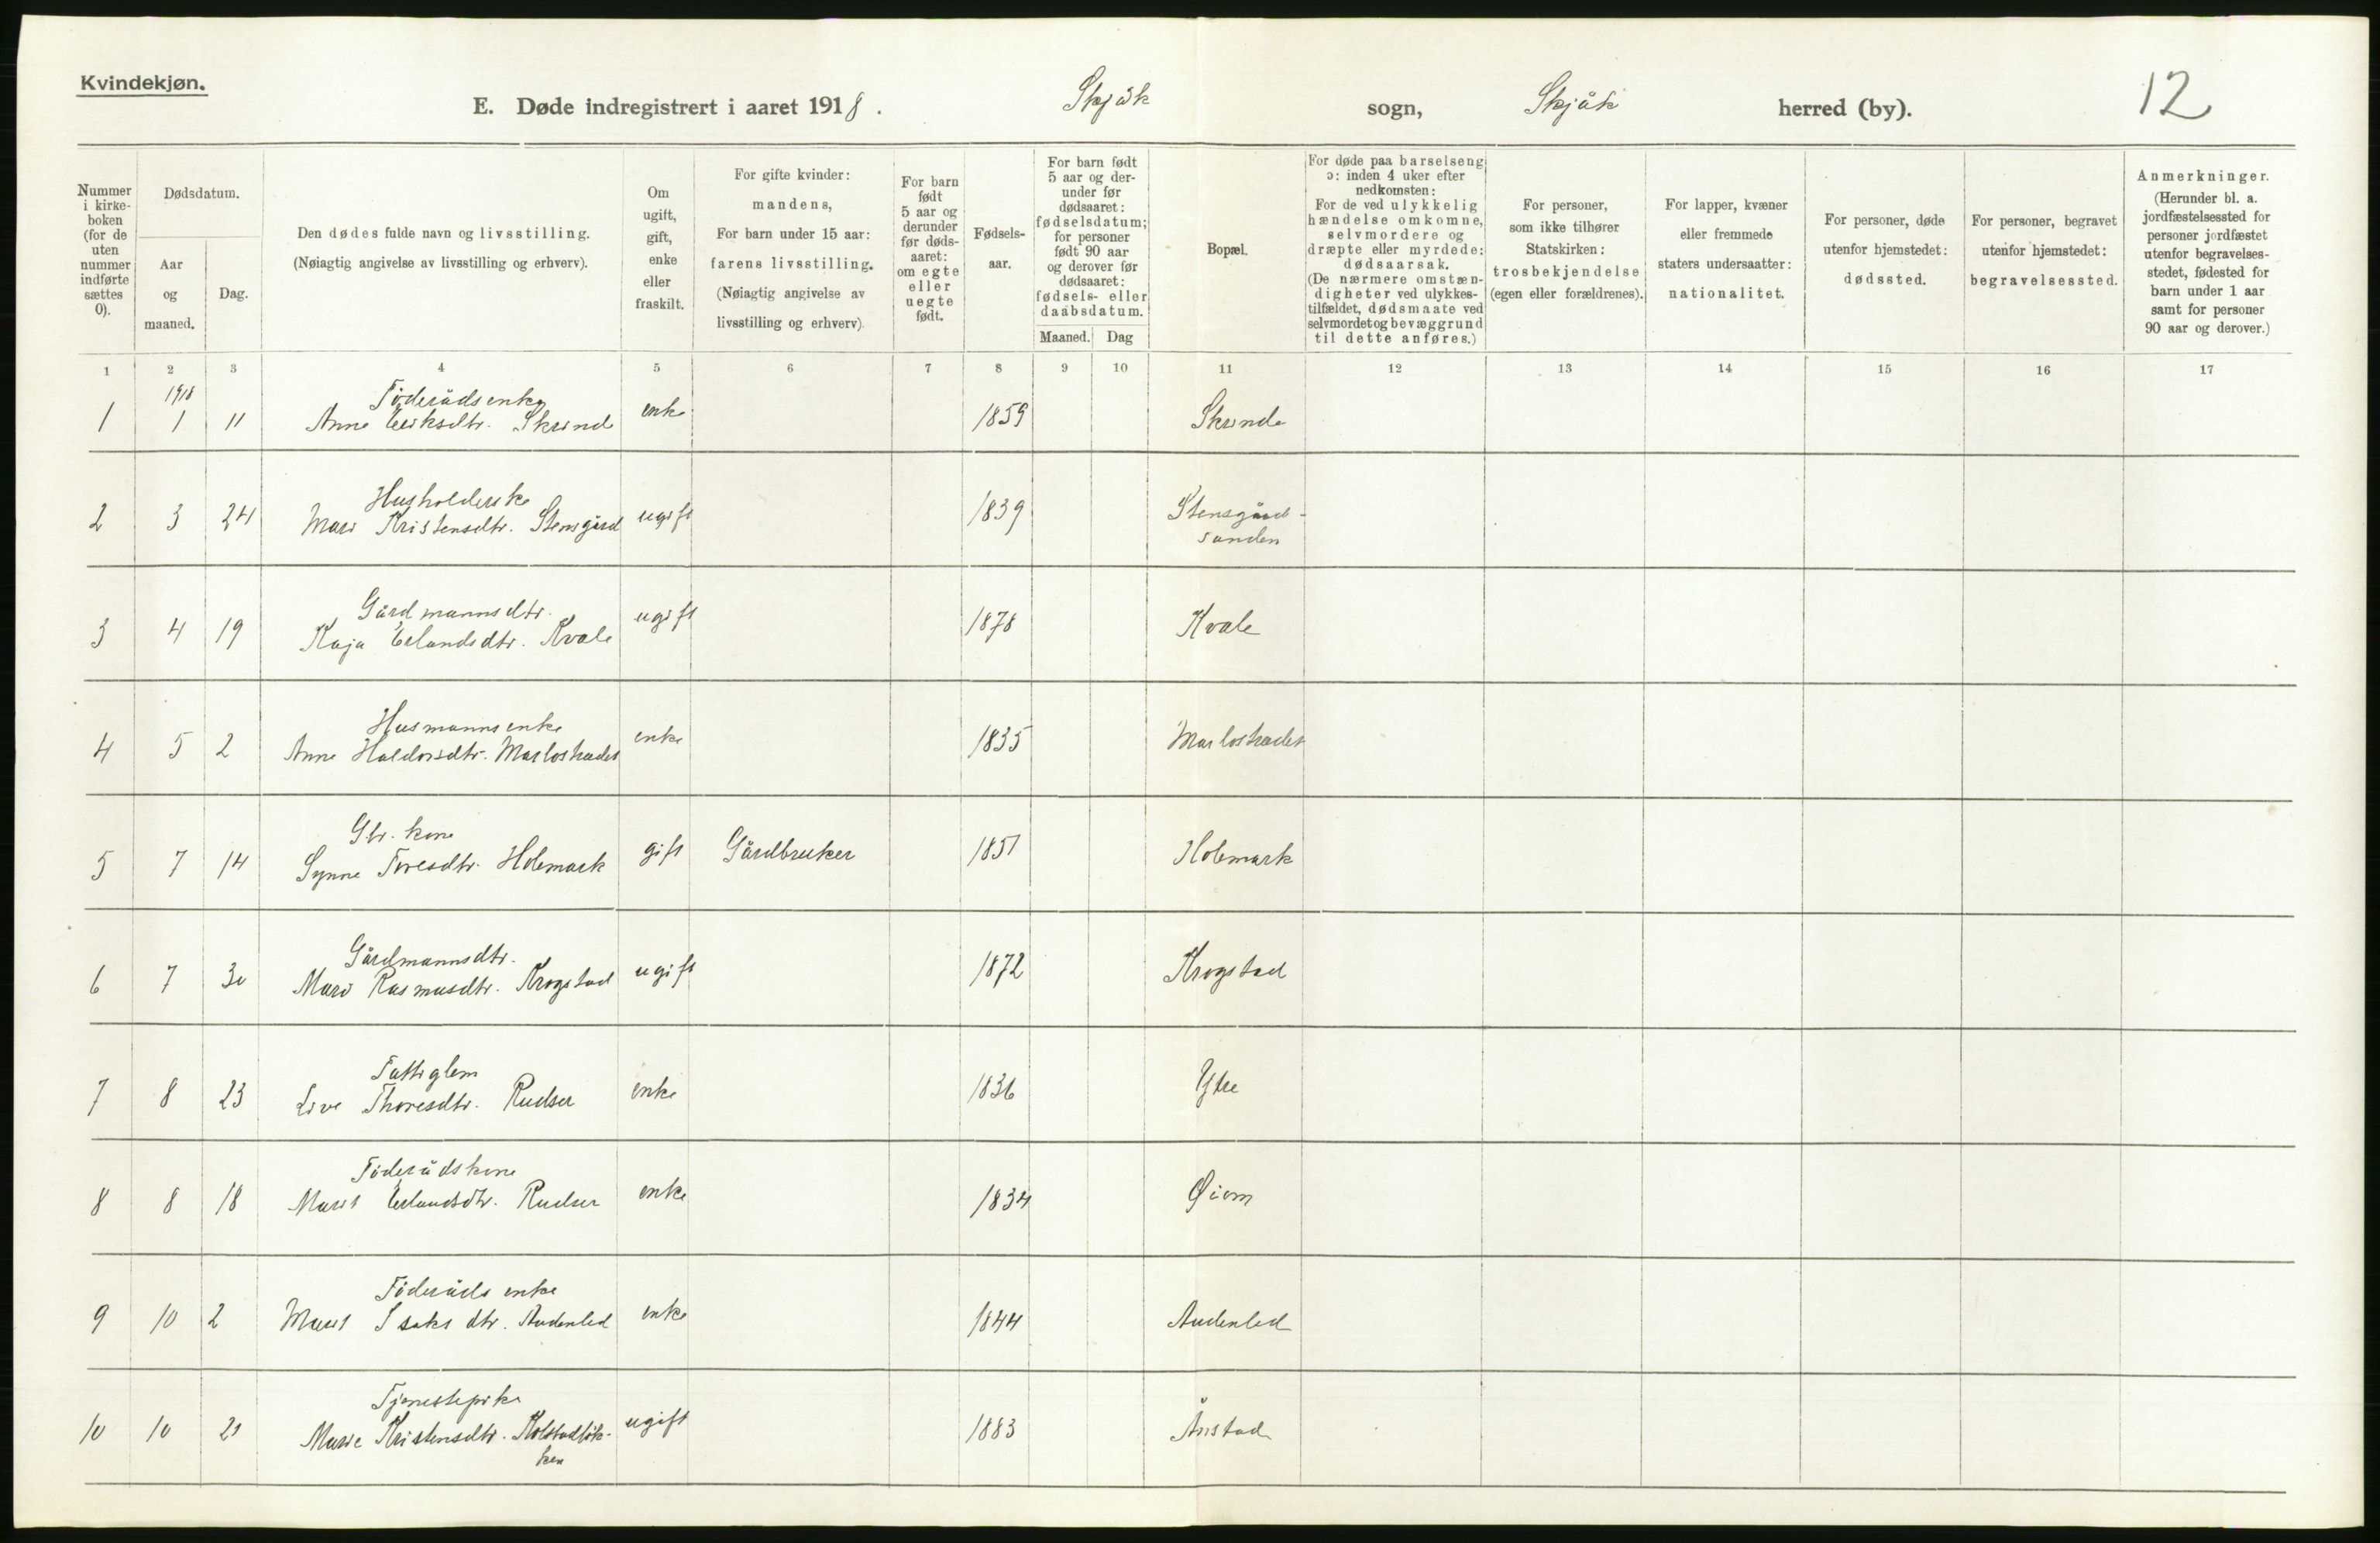 Kvindekjøn.
E. Døde indregistrert i aaret 1918. Skjåk sogn, Skjåk herred (by). 12
Nummer i kirke-boken (for de uten nummer indførte sættes 0).
Dødsdatum.
Aar og maaned.
Dag.
Den dødes fulde navn og livsstilling.
(Nøiagtig angivelse av livsstilling og erhverv).
Om ugift, gift, enke eller fraskilt.
For gifte kvinder: mandens,
For barn under 15 aar: farens livsstilling.
(Nøiagtig angivelse av livsstilling og erhverv).
For barn født 5 aar og derunder før døds-aaret: om egte eller uegte født.
Fødsels-aar.
For barn født 5 aar og der-under før dødsaaret: fødselsdatum; for personer født 90 aar og derover før dødsaaret: fødsels- eller daabsdatum.
Maaned. Dag
Bopæl.
For døde paa barselseng ɔ: inden 4 uker efter nedkomsten:
For de ved ulykkelig hændelse omkomne, selvmordere og dræpte eller myrdede: dødsaarsak.
(De nærmere omstæn-digheter ved ulykkes-tilfældet, dødsmaate ved selvmordet og bevæggrund til dette anføres.)
For personer, som ikke tilhører Statskirken: trosbekjendelse (egen eller forældrenes).
For lapper, kvæner eller fremmede staters undersaatter: nationalitet.
For personer, døde utenfor hjemstedet: dødssted.
For personer, begravet utenfor hjemstedet: begravelsessted.
Anmerkninger.
(Herunder bl. a. jordfæstelsessted for personer jordfæstet utenfor begravelses-stedet, fødested for barn under 1 aar samt for personer 90 aar og derover.)
1 2 3 4 5 6 7 8 9 10 11 12 13 14 15 16 17
1918 Föderådsenke
1 1 11 Anne Eeriksdtr. Skrinde enke 1859 Skrinde
Husholderske
2 3 24 Mari Kristensdtr. Stensgård ugift 1839 Stensgård-
sanden
Gårdmannsdtr.
3 4 19 Kaja Erlandsdtr. Kvale ugift 1878 Kvale
Husmannsenke
4 5 2 Anne Haldorsdtr. Marlostrædet enke 1835 Marlostrædet
Gbr. kone
5 7 14 Synne Toresdtr. Holemark gift Gårdbruker 1851 Holemark
Gårdmannsdtr.
6 7 30 Mari Rasmusdtr. Krogstad ugift 1872 Krogstad
Fattiglem
7 8 23 Live Thoresdtr. Rudser enke 1836 Ytre
Föderådskone
8 8 18 Marit Erlandsdtr. Rudser enke 1834 Øiom
Föderåds enke
9 10 2 Marit Isaksdtr. Audenled enke 1844 Audenled
Tjenestepike
10 10 Marie Kristensdtr. Kolstadlök-
ken ugift 1883 Ånstad